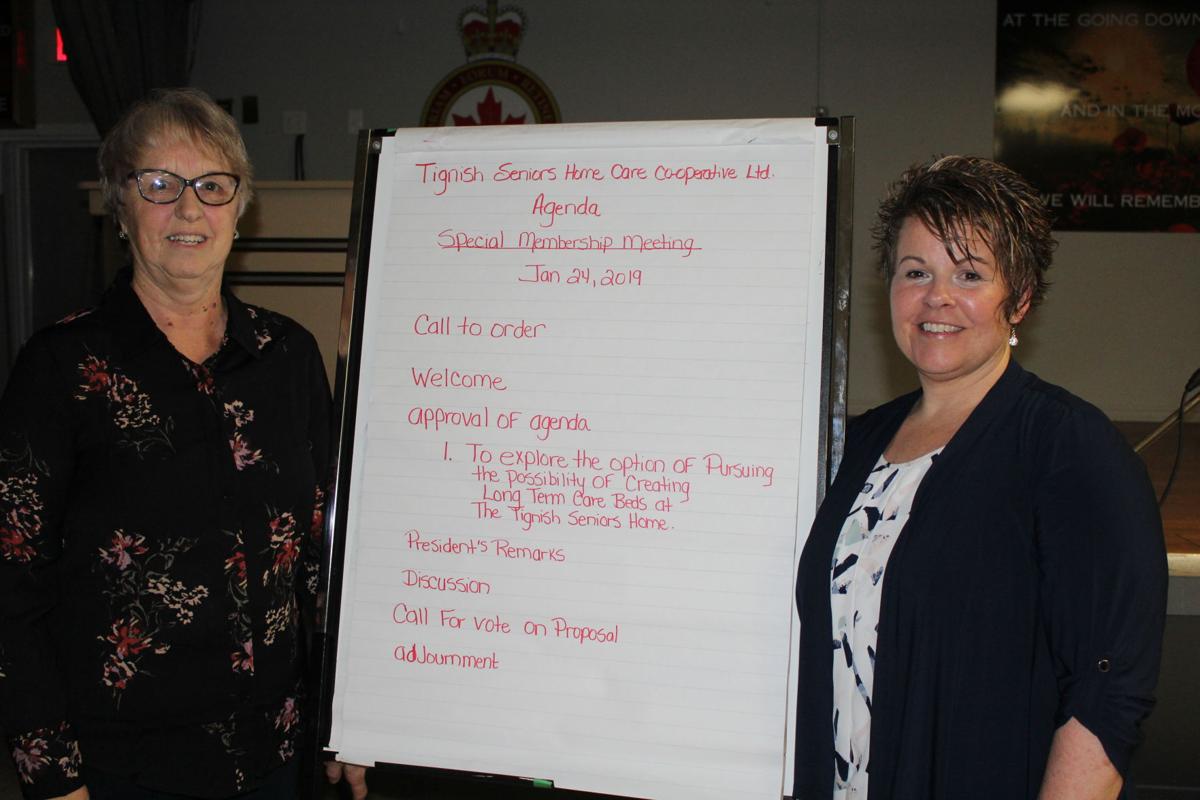 AT THE GOING DOWN
AND IN THE MO
WE WILL REMEMB
Tignish Seniors Home Care Co-operative Ltd.
Agenda
Special Membership Meeting
Jan 24, 2019
Call to order
Welcome
approval of agenda
1. To explore the option of Pursuing
the possibility of Creating
Long Term Care Beds at
The Tignish Seniors Home.
President's Remarks
Discussion
Call For vote on Proposal
adJournment